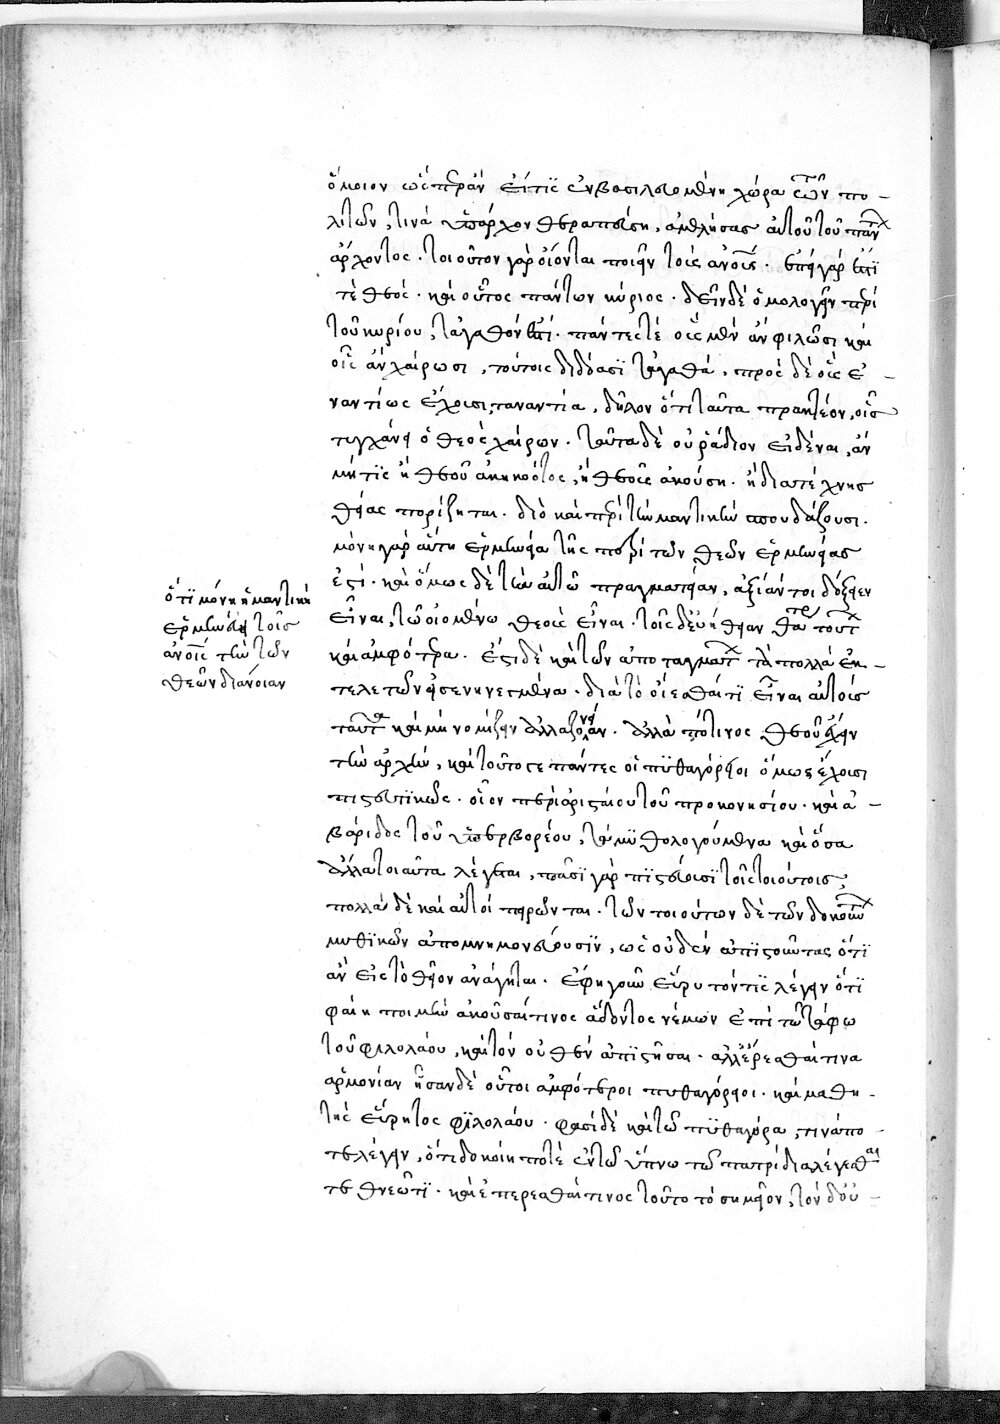 ὅμοιον ὡς περ ἂν εἴ τις ἐν βασιλευομένη χώρα τῶν πο-
λιτῶν, τινὰ ὕπαρχον θεραπεύση, ἀμελήσας αὐτοῦ τοῦ πάντων
ἄρχοντος. τοιοῦτον γὰρ οἴονται ποιεῖν τοὺς ἀνους. ἐπεὶ γὰρ ἐστί
τε θεός. καὶ οὗτος πάντων κύριος. δεῖν δὲ ὁμολογεῖν περὶ
τοῦ κυρίου, τἀγαθὸν ἐστί. πάντες τὲ οὓς μὲν ἂν φιλῶσι καὶ
οἷς ἂν χαίρωσι, τούτοις διδόασι τἀγαθά, πρὸς δὲ οὓς ἐ-
ναντίως ἔχουσι, ταναντία, δῆλον ὅτι ταῦτα πρακτέον, οἷς
τυγχάνει ὁ θεὸς χαίρων. ταῦτα δὲ οὐ ῥάδιον εἰδέναι, ἂν
μή τις ἢ θεοῦ ἀκηκοότος, ἢ θεοῖς ἀκούση. ἢ διὰ τέχνης
θείας πορίζηται. διὸ καὶ περὶ τὴν μαντικὴν σπουδάζουσι.
μόνη γὰρ αὕτη ἑρμηνεία τῆς παρὰ τῶν θεῶν ἑρμηνείας
ἐστί. καὶ ὅμως δὲ τὴν αὐτῶ πραγματείαν, ἀξίαν τοι δόξειεν
εἶναι, τῶ οἰομένω θεοὺς εἶναι. τοῖς δ' εὐήθειαν θάτερον τούτων
καὶ ἀμφότερα. ἔστι δὲ καὶ τῶν ἀποταγμάτων τὰ πολλὰ ἐκ
τελετῶν εἰσενηνεγμένα. διὰ τὸ οἴεσθαί τι εἶναι αὐτοὺς
ταῦτα καὶ μὴ νομίζειν ἀλαζονείαν. ἀλλὰ ἀπό τινος θεοῦ ἔχειν
τὴν ἀρχήν, καὶ τοῦτό γε πάντες οἱ πυθαγόρειοι ὅμως ἔχουσι
πιστευτικῶς. οἷον περὶ ἀρισταίου τοῦ προκονησίου. καὶ ἀ-
βάριδος τοῦ ὑπερβορέου, τὰ μυθολογούμενα καὶ ὅσα
ἄλλα τοιαῦτα λέγεται, πᾶσι γὰρ πιστεύουσι τοῖς τοιούτοις,
πολλὰ δὲ καὶ αὐτοὶ πειρῶνται. τῶν τοιούτων δὲ τῶν δοκούντων
μυθικῶν ἀπομνημονεύουσιν, ὡς οὐδὲν ἀπιστοῦντας ὅτι
ἂν εἰς τὸ θεῖον ἀνάγηται. ἔφη γοῦν εὔρυτόν τις λέγειν ὅτι
φαίη ποιμὴν ἀκοῦσαί τινος ἄδοντος νέμων ἐπὶ τῶ τάφω
τοῦ φιλολάου, καὶ τὸν οὐθὲν ἀπιστῆσαι. ἀλλ' ἔρεσθαί τινα
ἁρμονίαν ἦσαν δὲ οὗτοι ἀμφότεροι πυθαγόρειοι. καὶ μαθη-
τὴς εὔρητος φιλολάου. φασὶ δὲ καὶ τῶ πυθαγόρα, τινά πο-
τε λέγειν, ὅτι δοκοίη ποτὲ ἐν τῶ ὕπνω τῶ πατρὶ διαλέγεσθαι
τεθνεῶτι. καὶ ἐπερέσθαι τινος τοῦτο τὸ σημεῖον, τὸν δ' οὐ-
ὅτι μόνη ἡ μαντικὴ
ἑρμηνεύει τοῖς
ἀνοις τὴν τῶν
θεῶν διάνοιαν